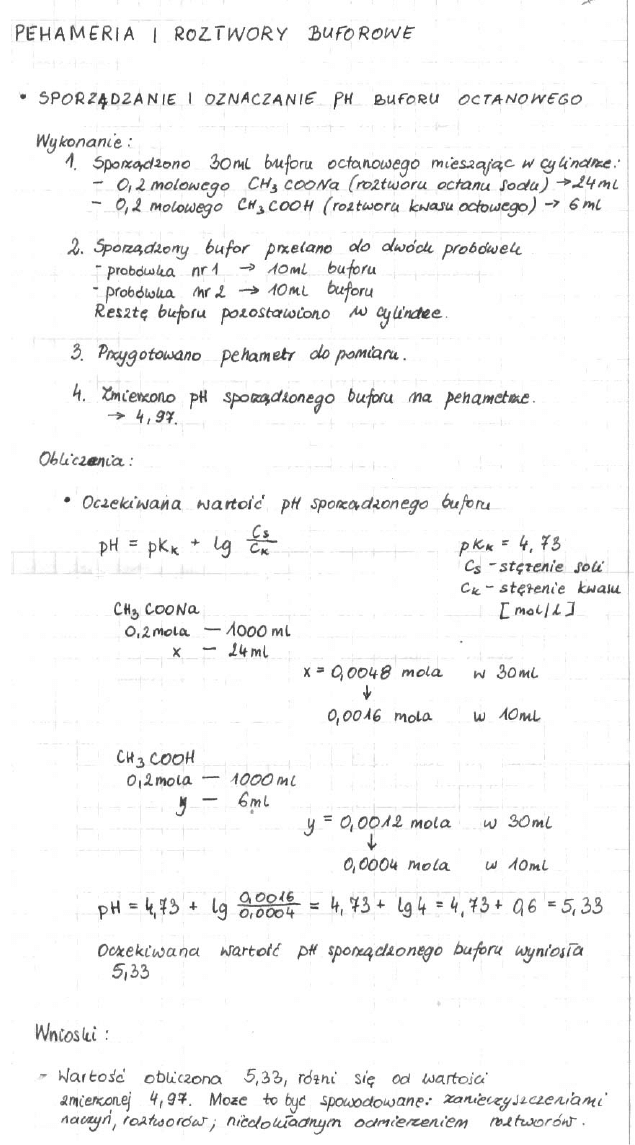 PEHAMERIA I ROZTWORY BUFOROWE
• SPORZĄDZANIE I OZNACZANIE PH BUFORU OCTANOWEGO
Wykonanie:
1. Sporządzono 30ml buforu octanowego mieszając w cylindrze:
- 0,2 molowego CH3COONa (roztworu octanu sodu) → 24ml
- 0,2 molowego CH3COOH (roztworu kwasu octowego) → 6ml
2. Sporządzony bufor przelano do dwóch probówek
- probówka nr 1 → 10ml buforu
- probówka nr 2 → 10ml buforu
Resztę buforu pozostawiono w cylindrze.
3. Przygotowano pehametr do pomiaru.
4. Zmierzono pH sporządzonego buforu na pehametrze.
→ 4,97.
Obliczenia:
• Oczekiwana wartość pH sporządzonego buforu
pH = pKk + lg Cs/Ck
pKk = 4,73
Cs - stężenie soli
Ck - stężenie kwasu
[mol/l]
CH3COONa
0,2mola — 1000ml
x — 24ml
x = 0,0048 mola w 30ml
↓
0,0016 mola w 10ml
CH3COOH
0,2mola — 1000ml
y — 6ml
y = 0,0012 mola w 30ml
↓
0,0004 mola w 10ml
pH = 4,73 + lg 0,0016/0,0004 = 4,73 + lg4 = 4,73 + 0,6 = 5,33
Oczekiwana wartość pH sporządzonego buforu wyniosła
5,33
Wnioski:
- Wartość obliczona 5,33, różni się od wartości
zmierzonej 4,97. Może to być spowodowane: zanieczyszczeniami
naczyń, roztworów; niedokładnym odmierzeniem roztworów.